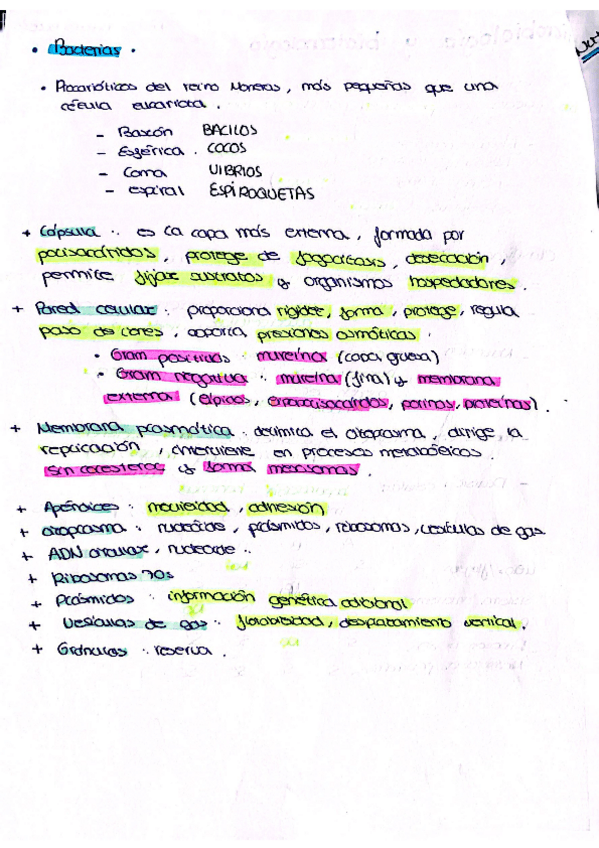 • Bacterias.
• Procarióticos del reino Moneras, más pequeñas que una
célula eucariota.
- Bastón BACILOS
- Esférica. COCOS
- Coma VIBRIOS
- espiral ESPIROQUETAS
+ Cápsula: es la capa más externa, formada por
polisacáridos, protege de fagocitosis, desecación,
permite fijar sustratos y organismos hospedadores.
+ Pared celular: proporciona rigidez, forma, protege, regula
paso de iones, soporta presiones osmóticas.
• Gram positivas: mureína (capa gruesa)
• Gram negativa: mureína (fina) y membrana
externa (lípidos, porinas, proteínas).
+ Membrana plasmática: delimita el citoplasma, dirige la
replicación, interviene en procesos metabólicos.
Sin colesterol y forma mesosomas.
+ Apéndices: movilidad, adhesión
+ citoplasma: nucleoide, plásmidos, ribosomas, vesículas de gas
+ ADN circular, nucleoide.
+ Ribosomas 70s
+ Plásmidos: información genética adicional
+ Vesículas de gas: flotabilidad, desplazamiento vertical.
+ Gránulos: reserva.